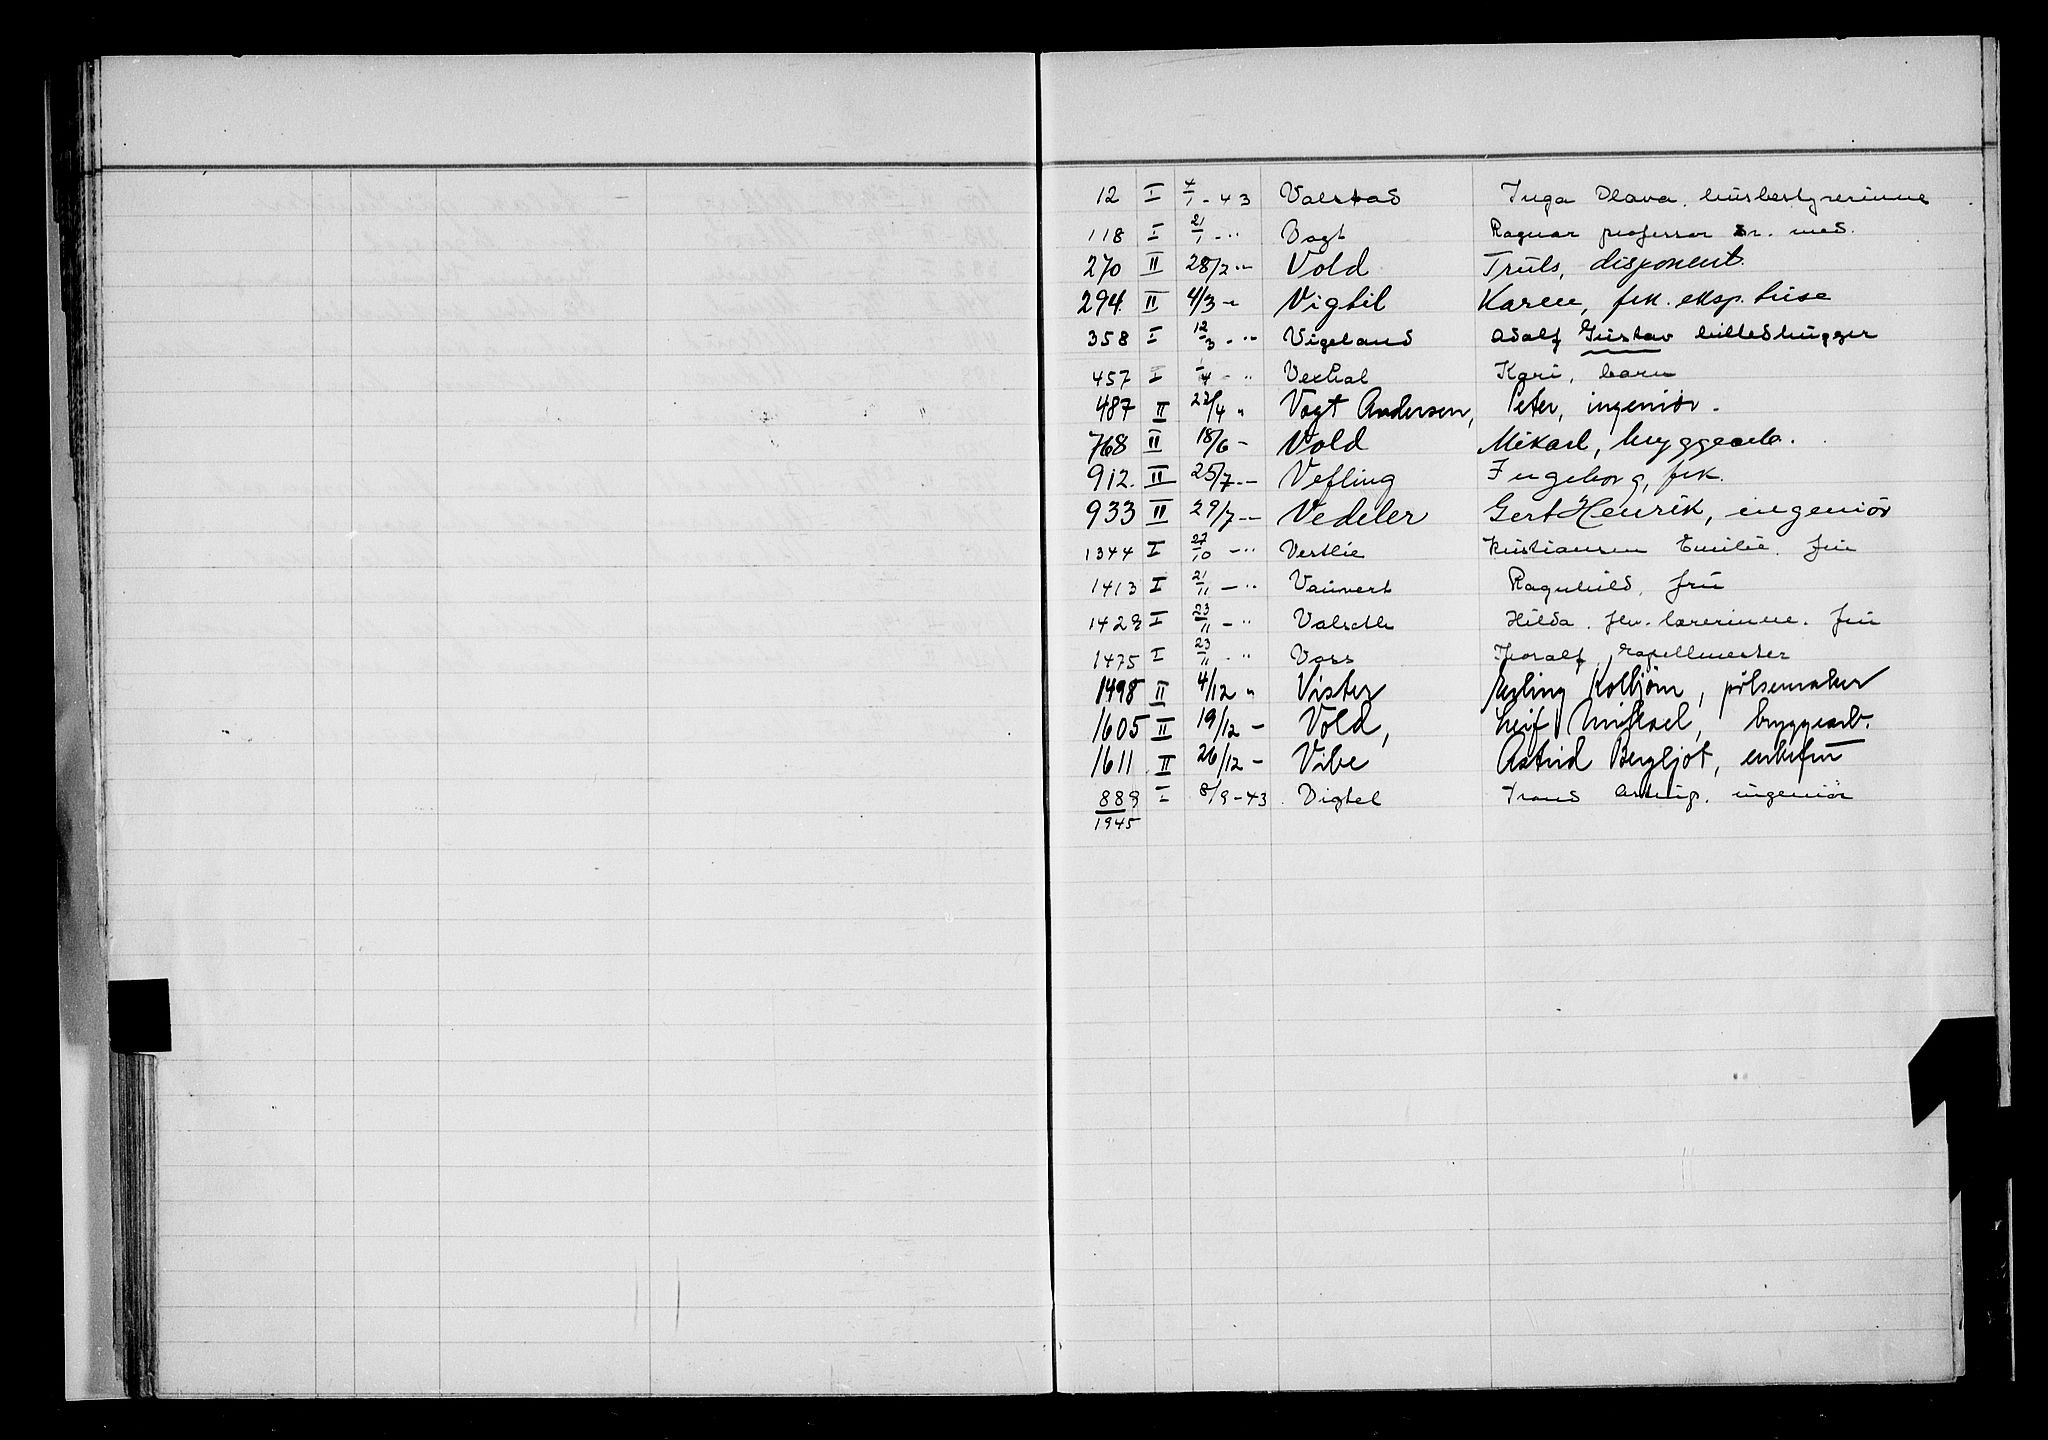 12 I 4/1 - 43 Valstad Inga Olava. husbestyrerinne
118 I 21/1 - " Vogt Ragnar professor dr. med.
270 II 28/2 -"- Vold Truls, disponent.
294. II 4/3 -"- Vigtil Karen, frk. eksp. trise
358 I 12/3 - " Vigeland Adolf Gustav billedhugger
457 I /4 - " Kari, barn
487 II 22/4 " Vogt Andersen, Peter, ingeniör.
768 II 18/6 - Vold Mikael, bryggearb.
912. II 25/7 -- Vefling Ingeborg, frk.
933 II 29/7 -- Vedeler Gert Henrik, ingeniör
1344 I 27/10 - " Vestlie Kristiansen Emilie. fru
1413 I 21/11 - " Vauvert Ragnhild, fru
1429 I 23/11 - " Hilda. fhv. lærerinne. fru
1475 I 23/11 - " Voss Thoralf, kapellmester
1498 II 4/12 " Vister Erling Kolbjörn, pölsemaker
1605 II 19/12 - Vold, Leif Mikael, bryggearb.
1611 II 26/12 - Vibe Astrid Bergljot, enkefru
889 I 8/9-43 Vigtel Trond ingeniör
1945